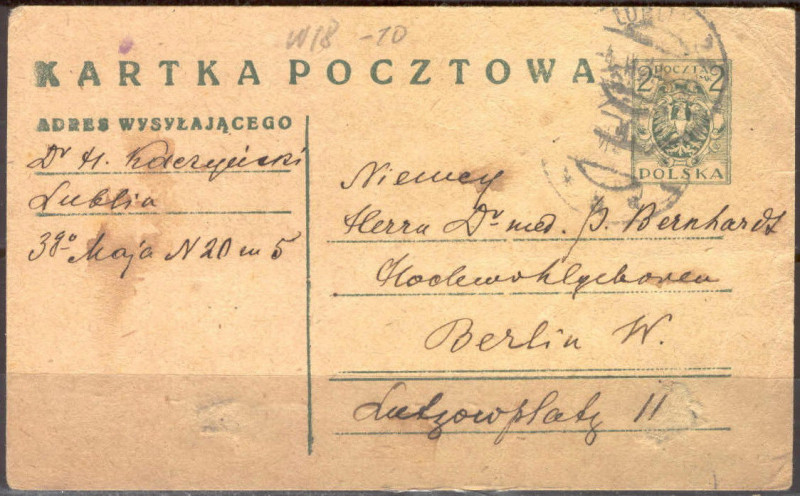 W18 -10
KARTKA POCZTOWA
2 POCZTA 2
POLSKA
ADRES WYSYŁAJĄCEGO
Dr H. Kaczyński
Lublin
3go Maja N 20 m 5
Niemcy
Herrn Dr med. J. Bernhardt
Hochwohlgeboren
Berlin W.
Lutzowplatz 11